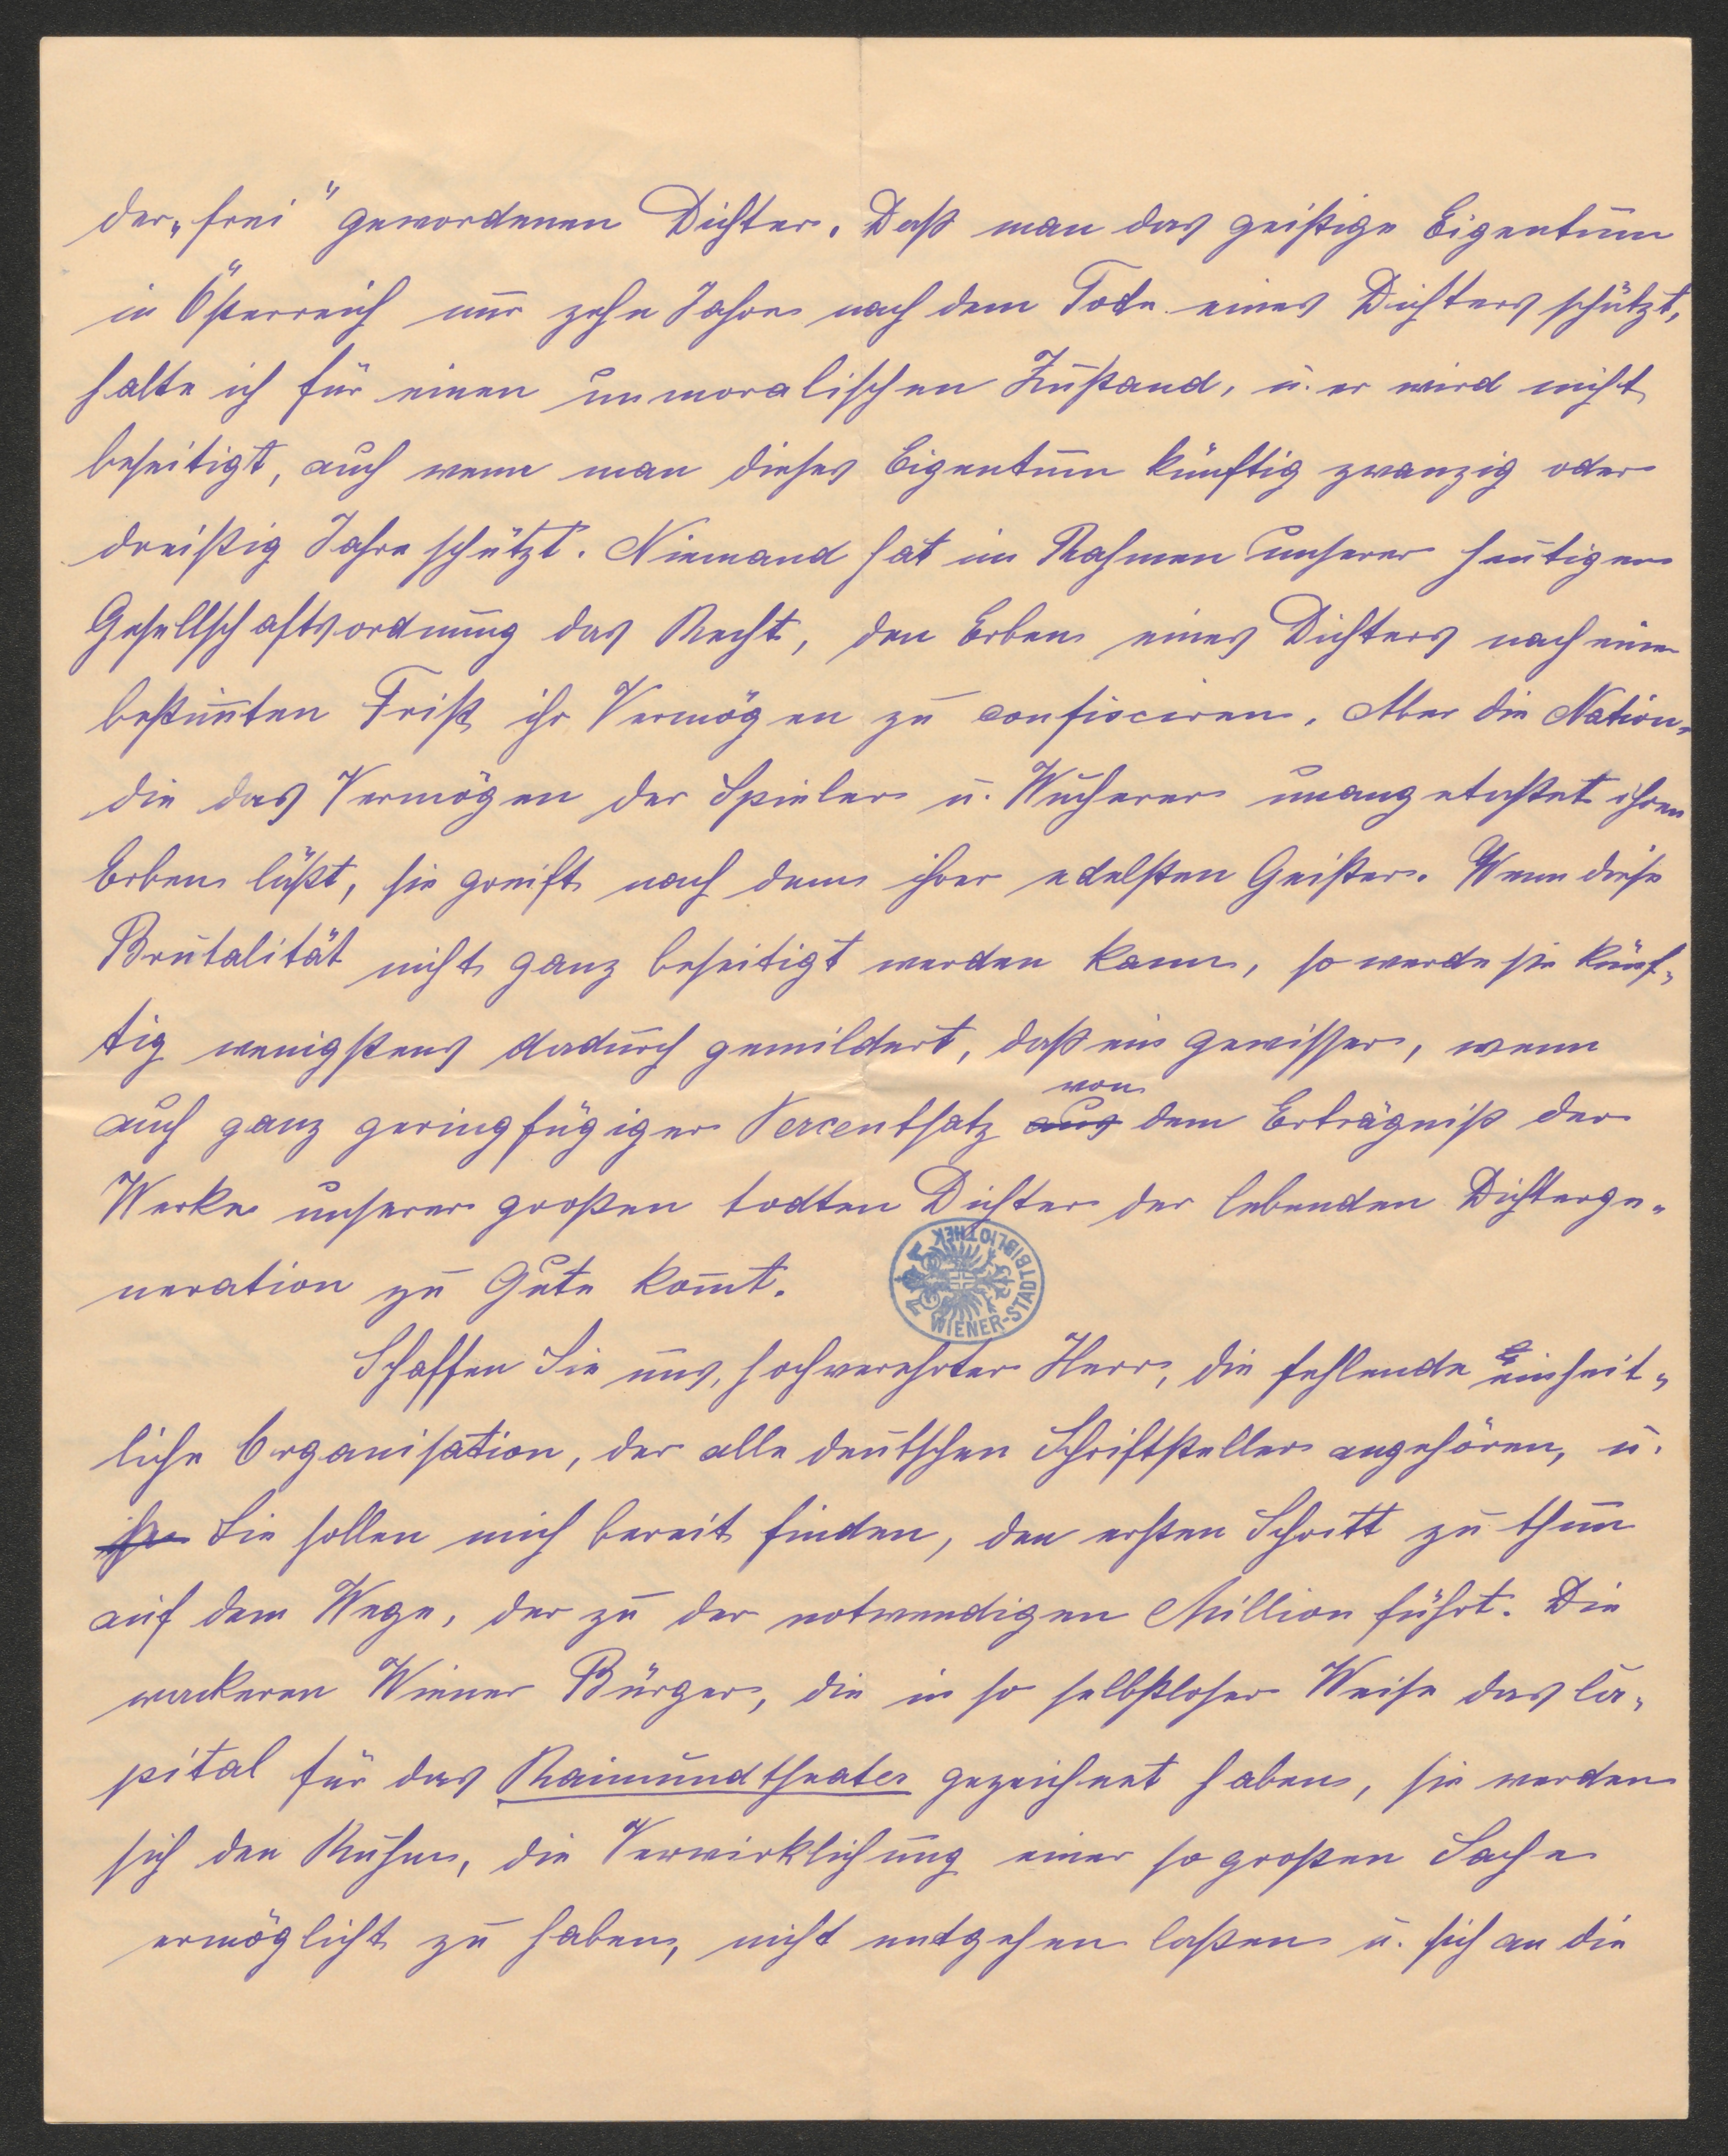 der „frei“ gewordenen Dichter. Daß man das geistige Eigentum
in Österreich nur zehn Jahre nach dem Tode eines Dichters schützt,
halte ich für einen unmoralischen Zustand, u. er wird nicht
beseitigt, auch wenn man dieses Eigentum künftig zwanzig oder
dreißig Jahre schützt. Niemand hat im Rahmen unserer heutigen
Gesellschaftsordnung das Recht, den Erben eines Dichters nach einer
bestim̄ten Frist ihr Vermögen zu confisciren. Aber die Nation,
die das Vermögen der Spieler u. Wucherer unangetastet ihren
Erben läßt, sie greift nach dem ihrer edelsten Geister. Wenn diese
Brutalität nicht ganz beseitigt werden kann, so werde sie künf-
tig wenigstens dadurch gemildert, daß ein gewisser, wenn
von
auch ganz geringfügiger Percentsatz aus dem Erträgniß der
Werke unserer großen todten Dichter der lebenden Dichterge-
neration zu Gute kom̄t.
WIENER-STADTBIBLIOTHEK
Schaffen Sie uns, hochverehrter Herr, die fehlende einheit-
liche Organisation, der alle deutschen Schriftsteller angehören, u.
Sie sollen mich bereit finden, den ersten Schritt zu thun
auf dem Wege, der zu der notwendigen Million führt. Die
wackeren Wiener Bürger, die in so selbstloser Weise das Ca-
pital für das Raimundtheater gezeichnet haben, sie werden
sich den Ruhm, die Verwirklichung einer so großen Sache
ermöglicht zu haben, nicht entgehen laßen u. sich an die